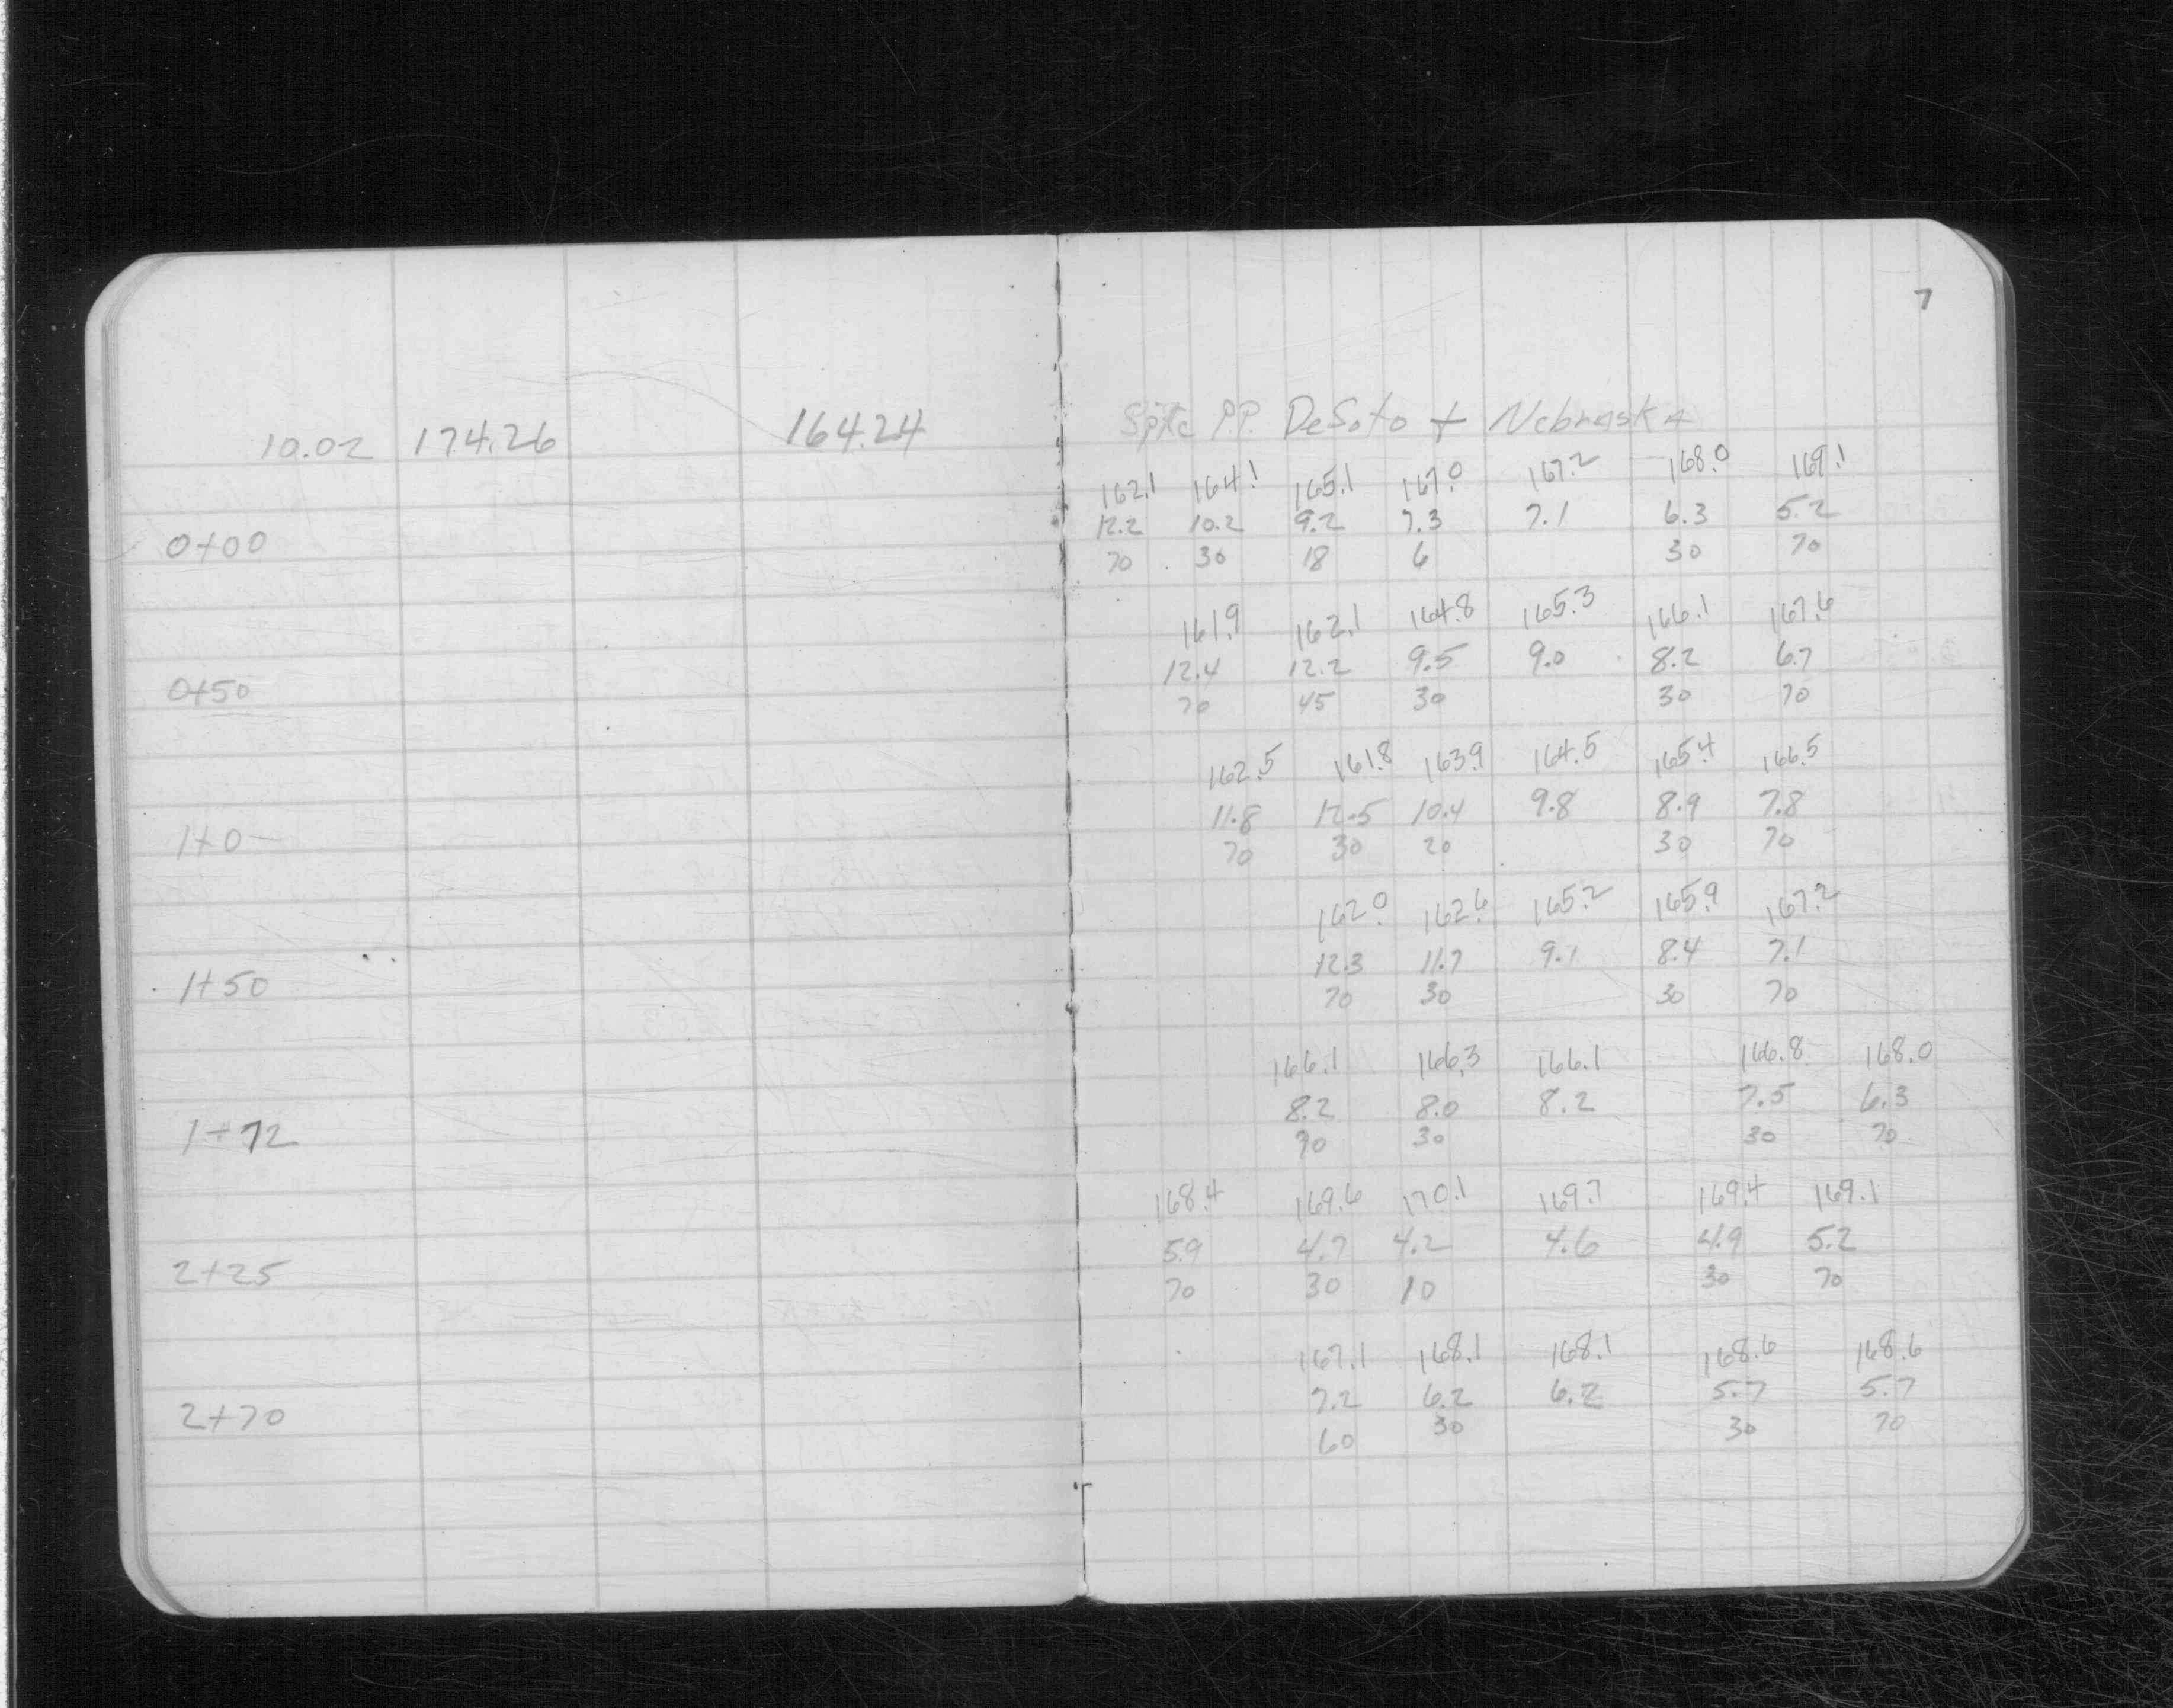 7
10.02 174.26 164.24 Spike P.P. DeSoto + Nebraska
162.1 164.1 165.1 167.0 167.2 168.0 169.1
12.2 10.2 9.2 7.3 7.1 6.3 5.2
0+00 70 30 18 6 30 70
161.9 162.1 164.8 165.3 166.1 167.6
12.4 12.2 9.5 9.0 8.2 6.7
0+50 70 45 30 30 70
162.5 161.8 163.9 164.5 165.4 166.5
11.8 12.5 10.4 9.8 8.9 7.8
1+0— 70 30 20 30 70
162.0 162.6 165.2 165.9 167.2
12.3 11.7 9.1 8.4 7.1
1+50 70 30 30 70
166.1 166.3 166.1 166.8 168.0
8.2 8.0 8.2 7.5 6.3
1+72 70 30 30 70
168.4 169.6 170.1 169.7 169.4 169.1
5.9 4.7 4.2 4.6 4.9 5.2
2+25 70 30 10 30 70
167.1 168.1 168.1 168.6 168.6
7.2 6.2 6.2 5.7 5.7
2+70 60 30 30 70